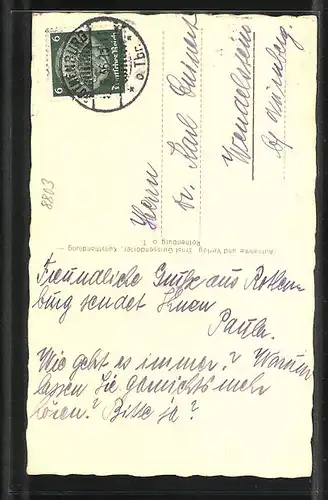 Freundliche Grüße aus Rothen-
burg sendet Ihnen
Paula.
Wie geht es immer? Warum
lassen Sie garnichts mehr
hören? Bitte ja?
Herrn
Dr. Karl
Wendelstein
b/ Nürnberg
Aufnahme und Verlag Ernst Geissendörfer, Kunsthandlung –
Rothenburg o. T.
6 Deutsches Reich 6
o. Tbr.
8803